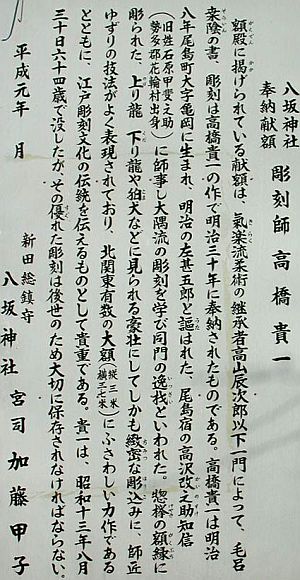 八坂神社
奉納献額
彫刻師 高橋貴一
額殿に掲げられている献額は、氣楽流柔術の継承者高山辰次郎以下一門によって、毛呂
桒陰の書、彫刻は高橋貴一の作で明治三十年に奉納されたものである。高橋貴一は明治
八年尾島町大字亀岡に生まれ、明治の左甚五郎と謳はれた、尾島宿の高沢改之助知信
(旧姓石原甲斐之助 勢多郡花輪村出身)に師事し大隅流の彫刻を学び同門の逸哉といわれた。惣欅の額縁に
彫られた、上り龍 下り龍や狛犬などに見られる豪壮にしてしかも緻密な彫込みに、師匠
ゆずりの技法がよく表現されており、北関東有数の大額(縦三米 横三七米)にふさわしい力作である
とともに、江戸彫刻文化の伝統を伝えるものとして貴重である。貴一は、昭和十三年八月
三十日六十四歳で没したが、その優れた彫刻は後世のため大切に保存されなければならない。
平成元年 月
新田総鎮守
八坂神社 宮司 加藤甲子